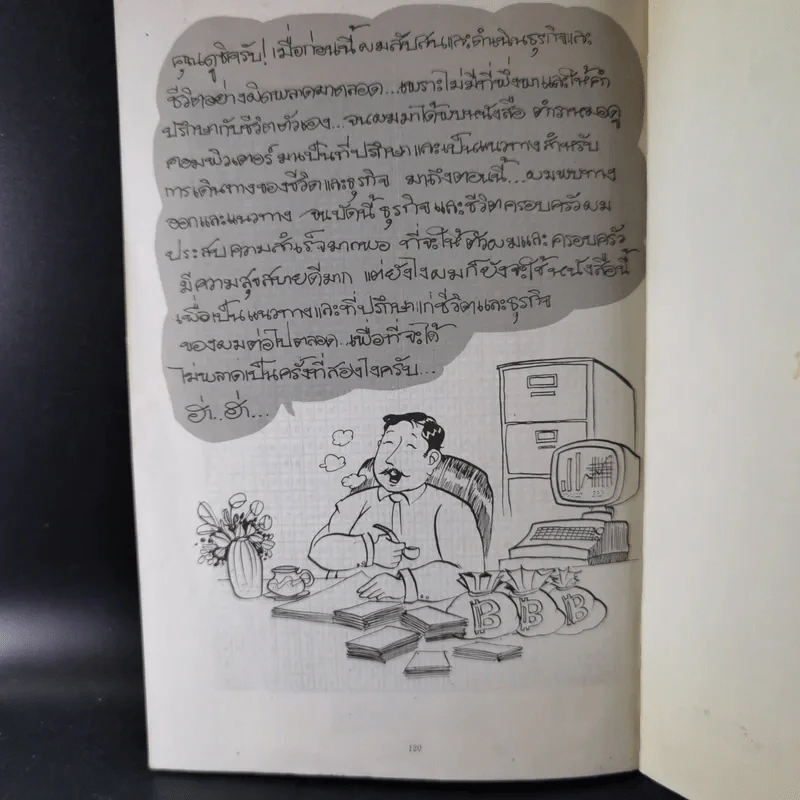 คุณดูซิครับ! เมื่อก่อนนี้ ผมสับสนและดำเนินธุรกิจและ
ชีวิตอย่างผิดพลาดมาตลอด...เพราะไม่มีที่พึ่งพาและให้คำ
ปรึกษากับชีวิตตัวเอง...จนผมมาได้พบหนังสือ ตำราหมอดู
คอมพิวเตอร์ มาเป็นที่ปรึกษา และเป็นแนวทางสำหรับ
การเดินทางของชีวิตและธุรกิจ มาถึงตอนนี้...ผมพบทาง
ออกและแนวทาง จนบัดนี้ ธุรกิจ และชีวิตครอบครัวผม
ประสบความสำเร็จมากพอ ที่จะให้ตัวผมและครอบครัว
มีความสุขสบายดีมาก แต่ยังไงผมก็ยังจะใช้หนังสือนี้
เพื่อเป็นแนวทางและที่ปรึกษาแก่ชีวิตและธุรกิจ
ของผมต่อไปตลอด..เพื่อที่จะได้
ไม่พลาดเป็นครั้งที่สองไงครับ...
ฮ่า..ฮ่า...
฿ ฿ ฿
120